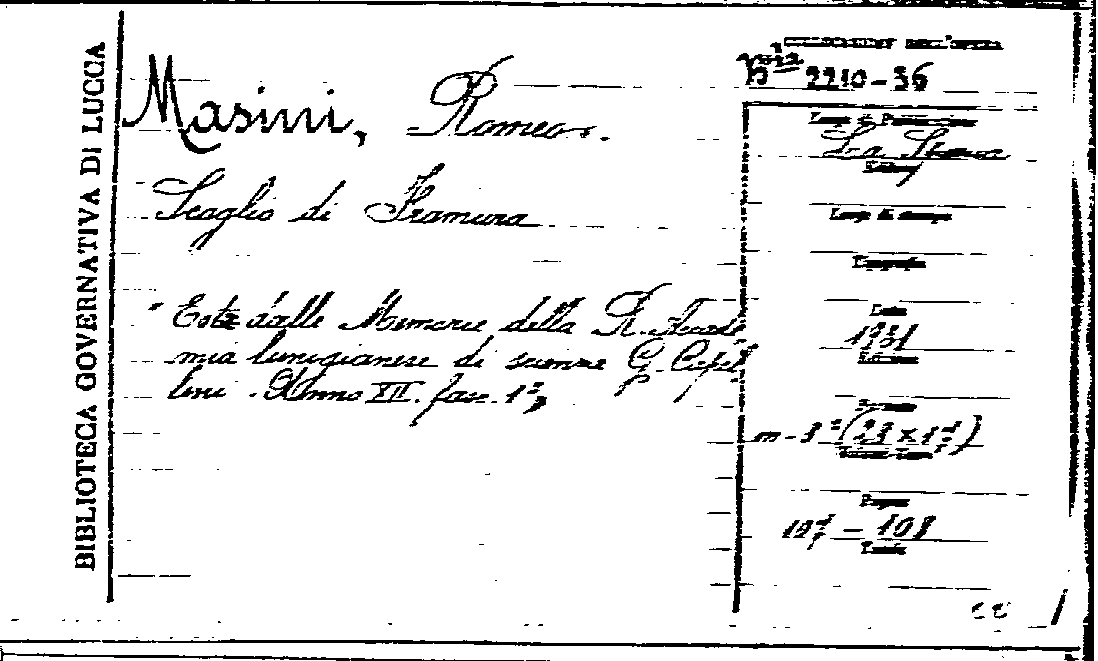 BIBLIOTECA GOVERNATIVA DI LUCCA
Masini, Romeo.
Scoglio di Framura
" Estr. dalle Memorie della R. Accade
mia lunigianese di scienze G. Capel
lini. Anno XII. fasc. 1°,
COLLOCAZIONE DELL'OPERA
2210-36
Luogo di Pubblicazione
La Spezia
Editore
Luogo di stampa
Tipografia
Data
1931
Edizione
Formato
m-8°
Pagine
107 – 108
Tavole